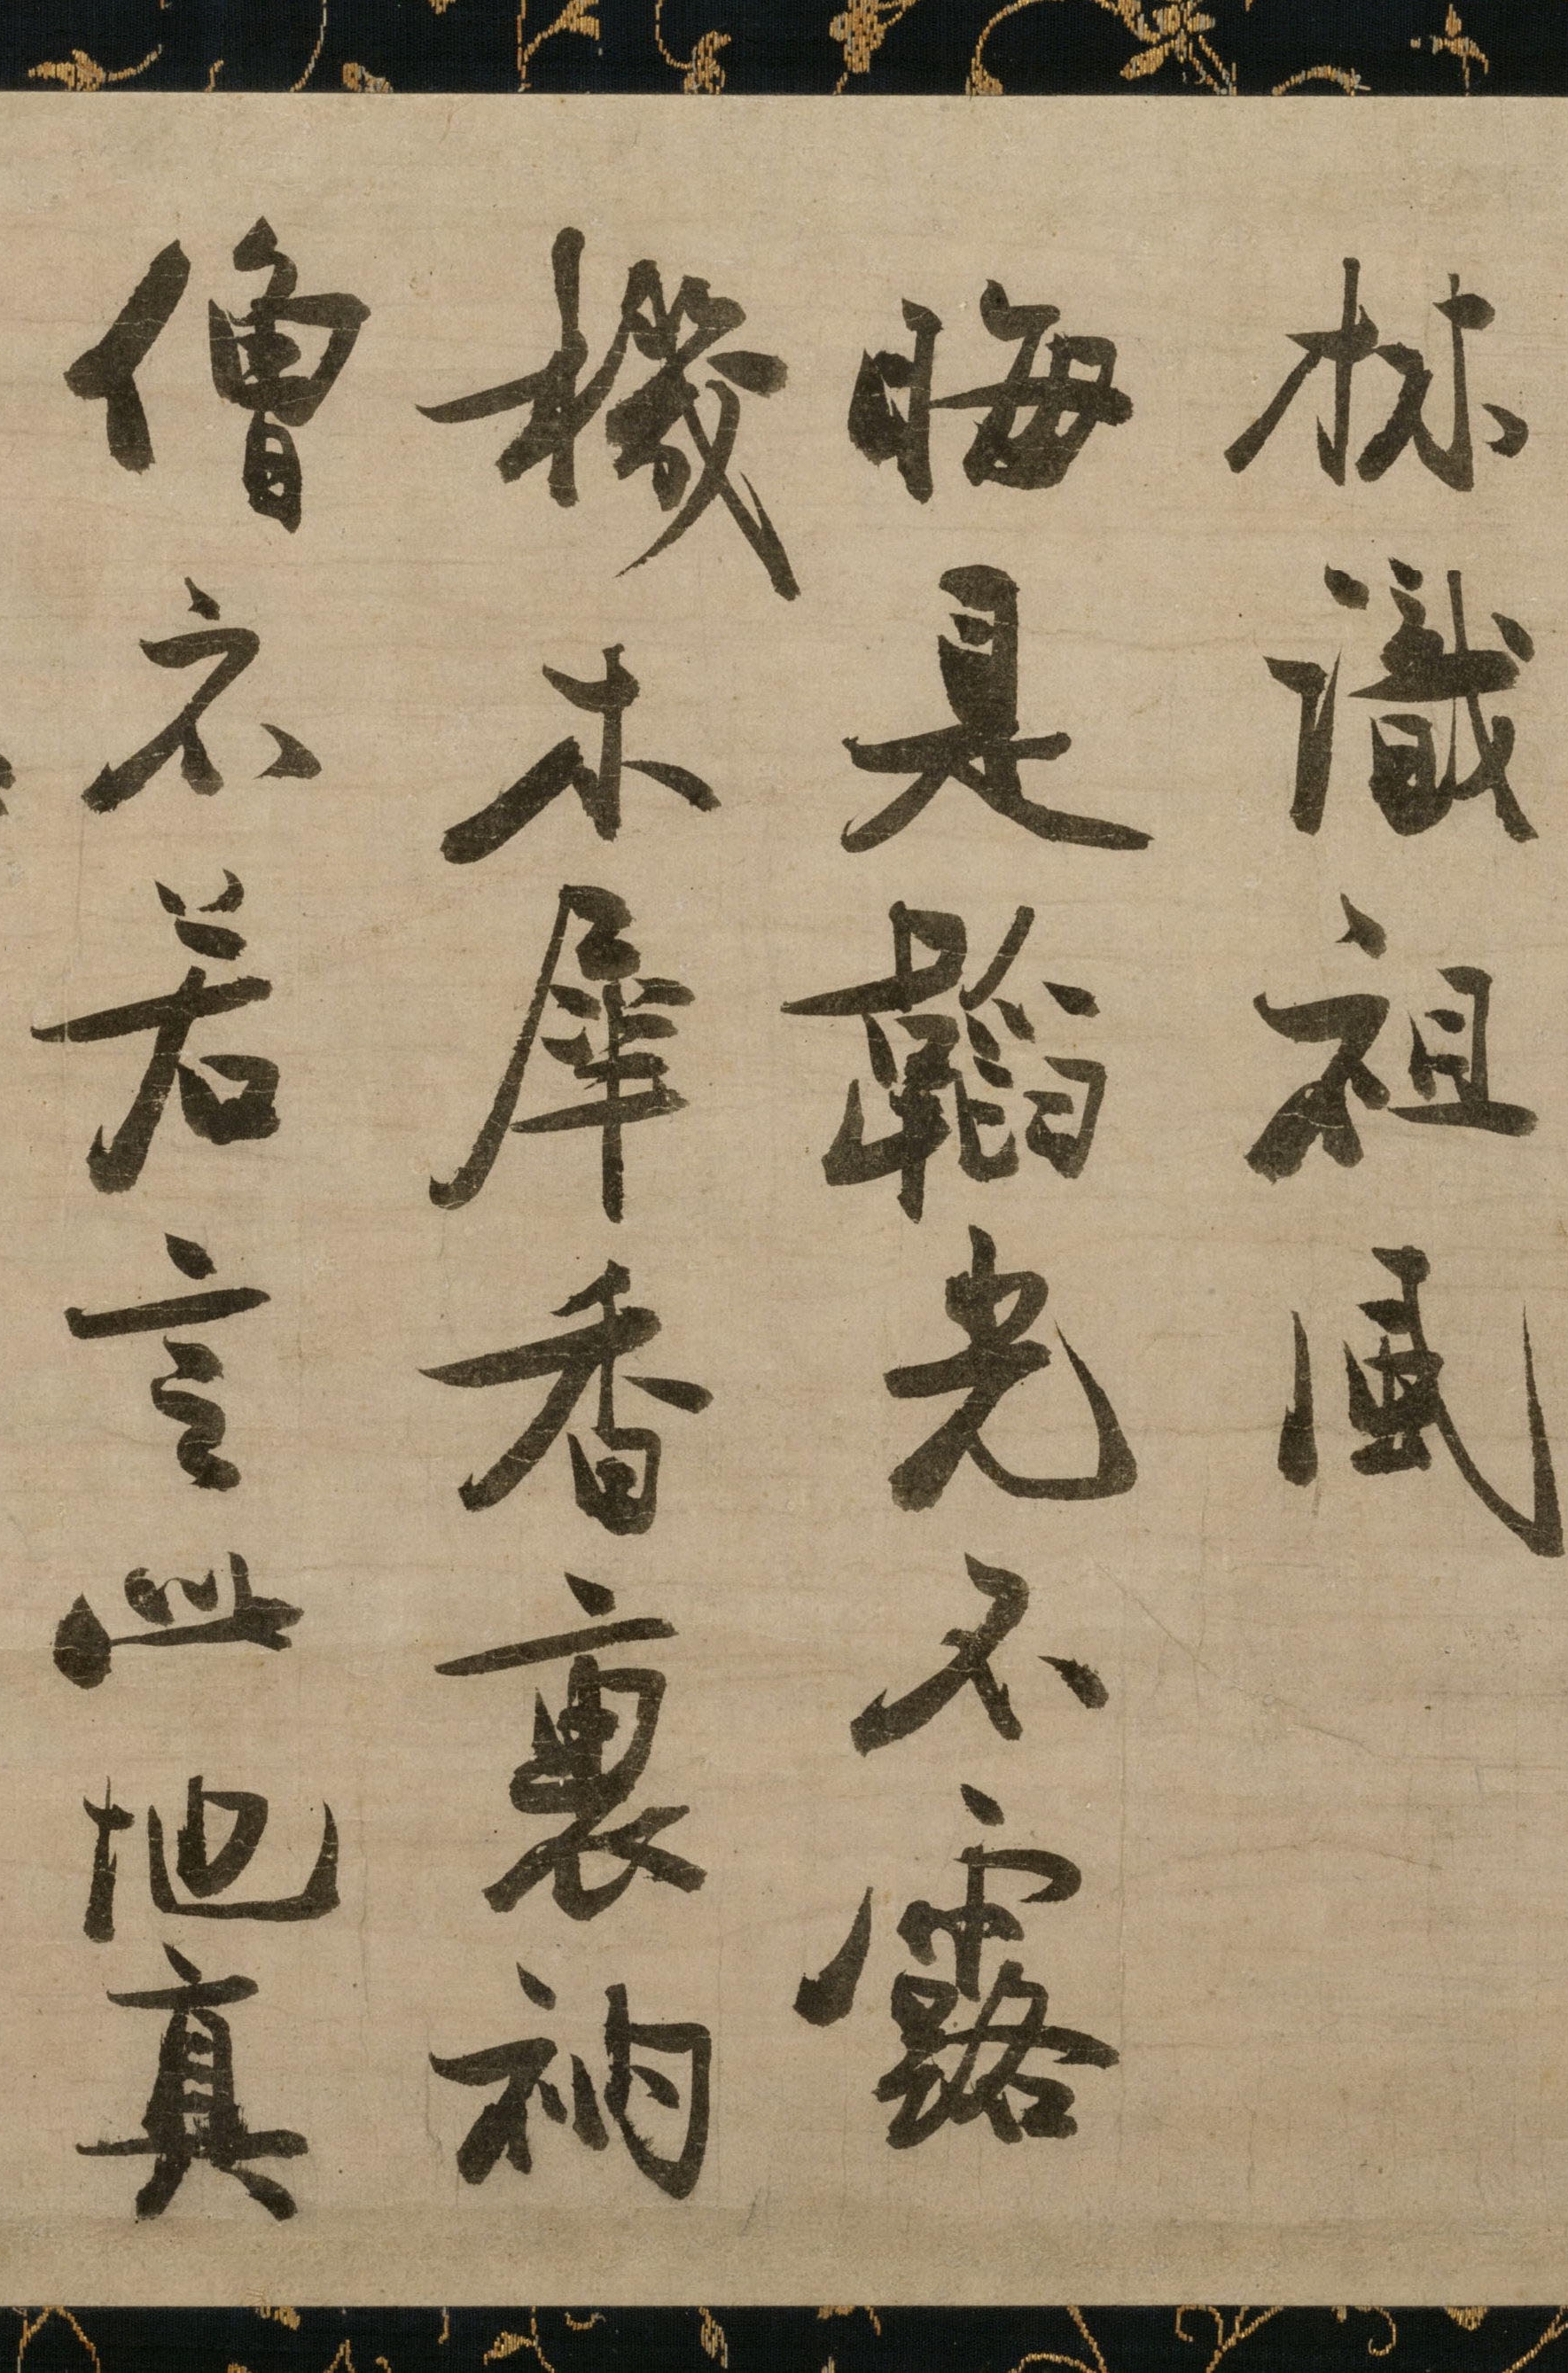 林識祖風
晦是韜光不露
機木犀香裏衲
僧衣若言此地真